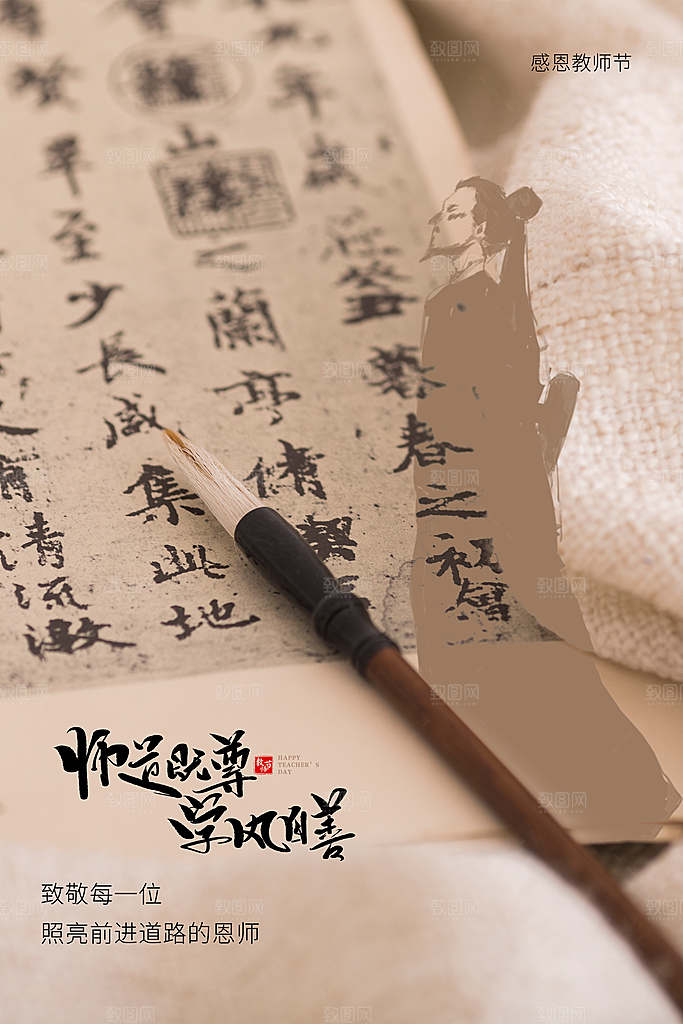 感恩教师节
年歲在癸丑暮春之初會
山陰之蘭亭脩禊
賢畢至少長咸集此地
清流激
师道既尊
学风自善
教师节
HAPPY
TEACHER'S
DAY
致敬每一位
照亮前进道路的恩师
致图网